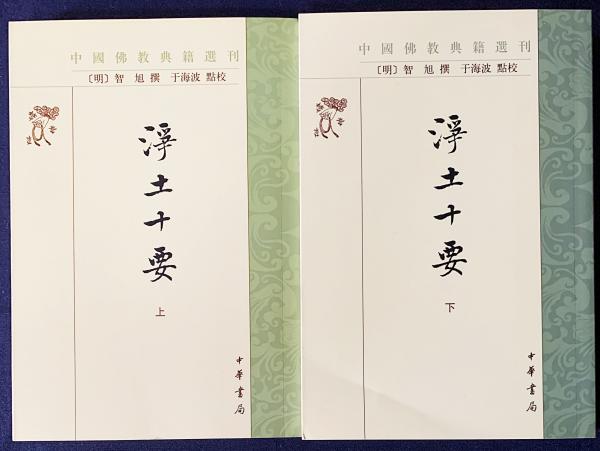 中國佛教典籍選刊
〔明〕智 旭 撰 于海波 點校
淨土十要
上
中華書局
中國佛教典籍選刊
〔明〕智 旭 撰 于海波 點校
淨土十要
下
中華書局